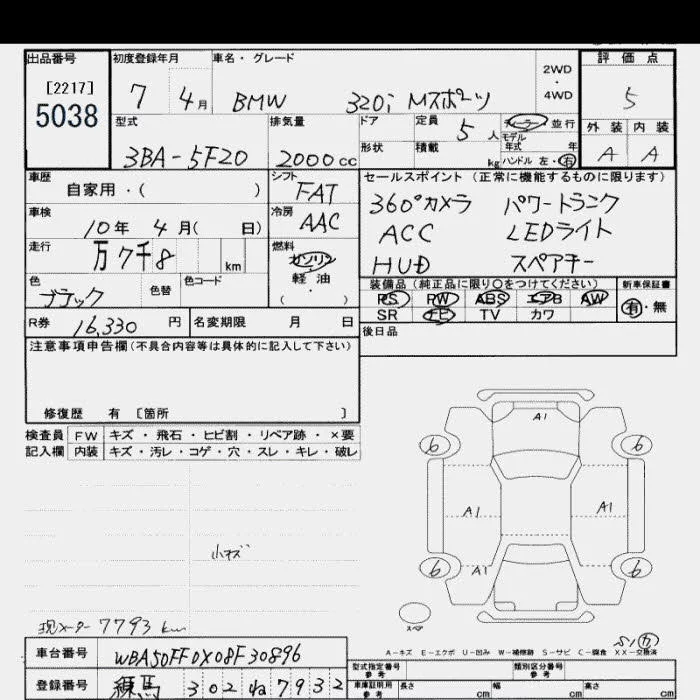 出品番号 初度登録年月 車名・グレード 2WD・4WD 評価点
[2217]
5038 7 4月 BMW 320i Mスポーツ 5
型式 排気量 ドア 定員 5人 ディーラー 並行 外装 内装
モデル年式 年
3BA-5F20 2000cc 形状 積載 kg ハンドル 左・右 A A
車歴 シフト セールスポイント(正常に機能するものに限ります)
自家用・( ) FAT 360°カメラ パワートランク
車検 冷房
10年 4月( 日) AAC ACC LEDライト
走行 燃料
万7千8 km ガソリン HUD スペアキー
軽油
・
( )
色 色替 色コード 装備品(純正品に限り○をつけてください) 新車保証書
ブラック PS PW ABS エアB AW 有・無
SR ナビ TV カワ
R券 16,330円 名変期限 月 日 後日品
注意事項申告欄(不具合内容等は具体的に記入して下さい)
修復歴 有 [箇所 ]
検査員 FW キズ・飛石・ヒビ割・リペア跡・×要
記入欄 内装 キズ・汚レ・コゲ・穴・スレ・キレ・破レ
小キズ
現メーター 7793km
A1
6 6
A1 A1
6 A1 6
スペア
S1 カ
A-キズ E-エクボ U-凹み W-補修跡 S-サビ C-腐食 XX-交換済
車台番号 WBA50FF0X08F30896
型式指定番号 参考 類別区分番号 参考
登録番号 練馬 302 ね 7932
車庫証明用 参考 長さ cm 幅 cm 高さ cm